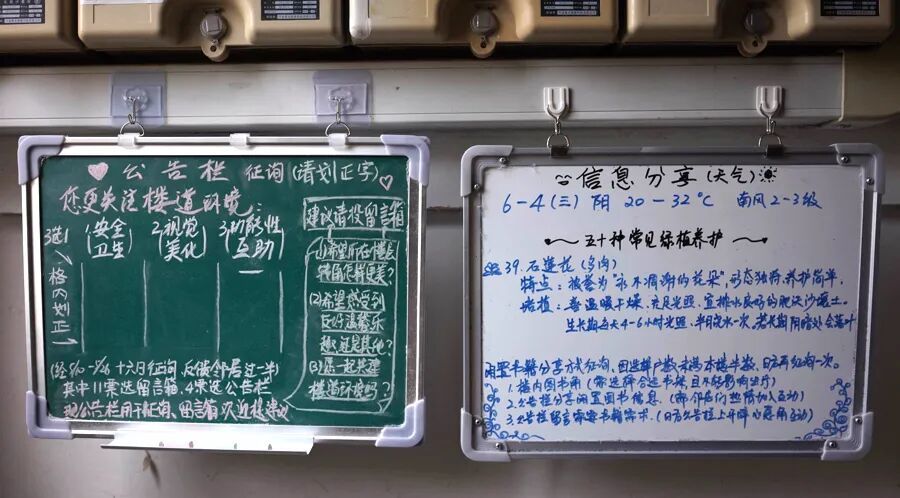 公告栏 征询(请划正字)
您更关注楼道环境:
选1
格内划正
1.安全卫生
2.视觉美化
3.功能性互助
一
建议请投留言箱
(1)希望所在楼层
转角怎样更美?
(2)希望感受到
友好温馨乐
趣还是其他?
(3)愿一起共建
楼道环境吗?
(经5/10-5/26 十六日征询,反馈邻居过一半)
其中11票选留言箱,4票选公告栏
现公告栏用于征询、留言箱收
信息分享(天气)
6-4(三) 阴 20-32℃ 南风2-3级
五十种常见绿植养护
39.石莲花(多肉)
特点:被誉为"永不凋谢的花朵",形态独特,养护简单.
培植:喜温暖干燥、充足光照,宜排水良好的肥沃沙壤土。
生长期每天4-6小时光照,半月浇水一次,若长期阴暗处会落叶
书籍分享方式征询,因选择户数未超本楼半数,日再征询一次。
1.楼内图书角(需选择合适书架,且不能影响出行)
2.公告栏分享闲置图书信息(邻居们热情加入互动)
3.公告栏留言需要书籍需求.